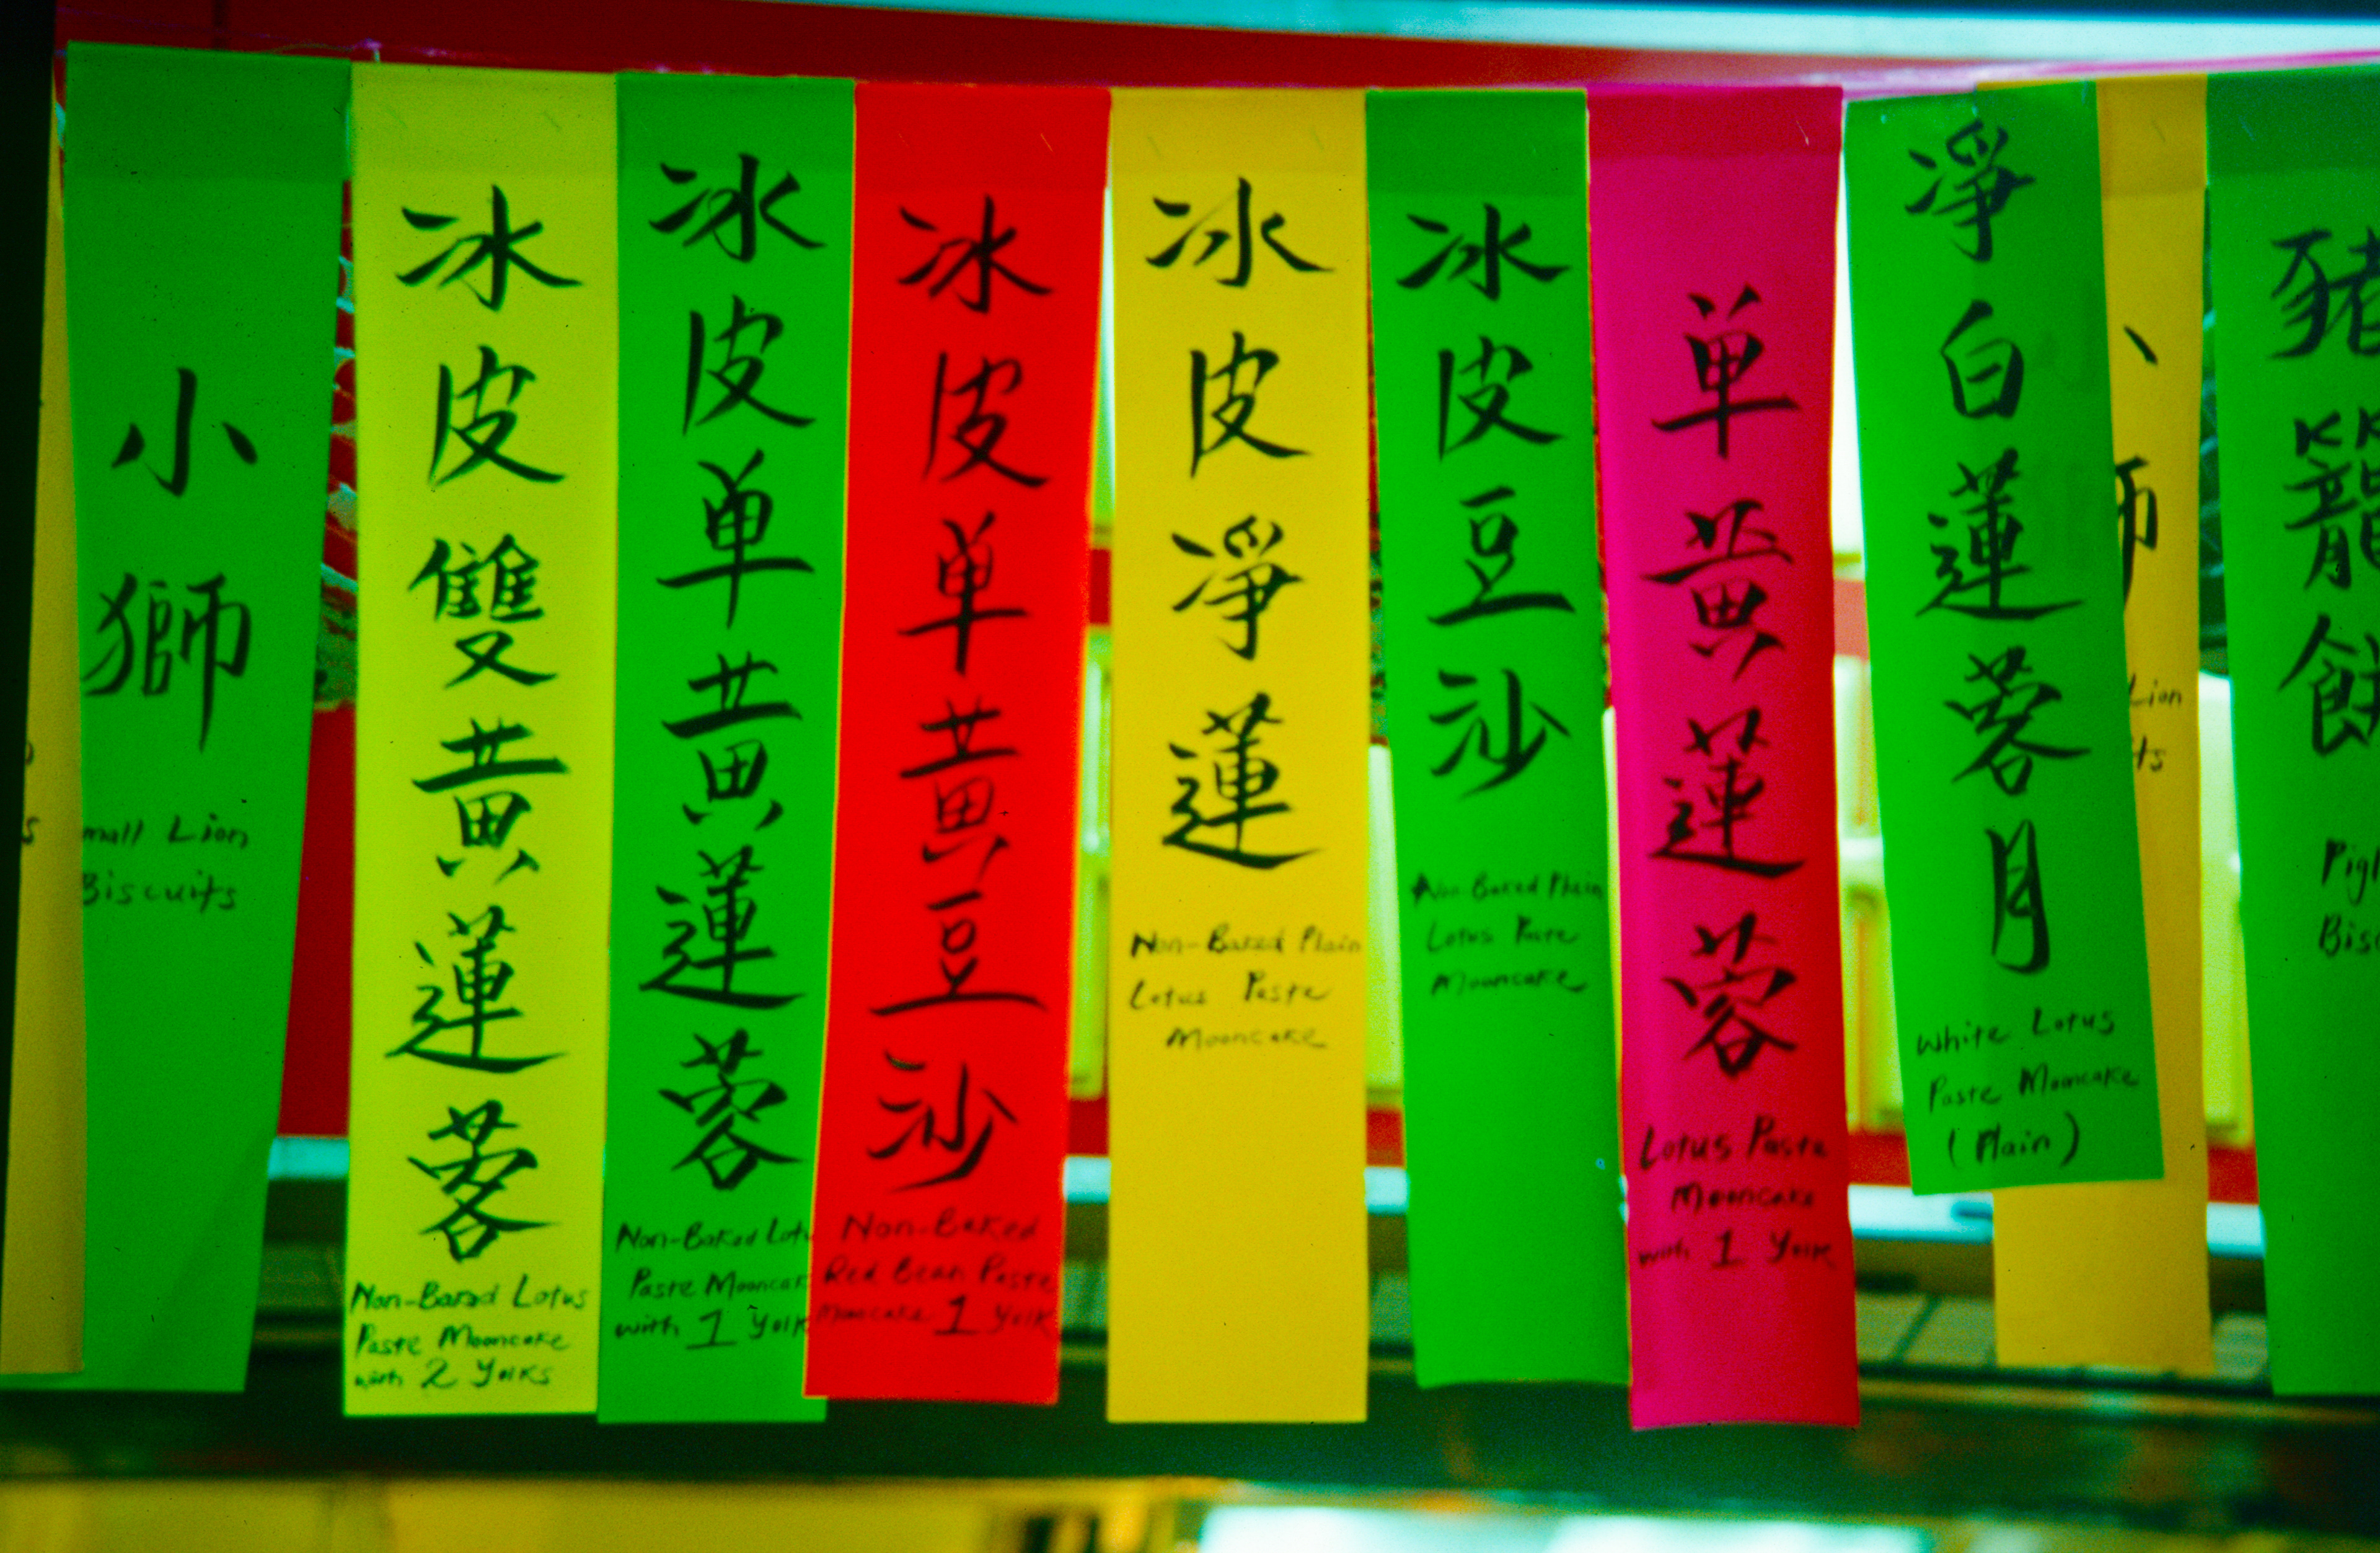 小獅
mall Lion
Biscuits
冰皮雙黃蓮蓉
Non-Baked Lotus
Paste Mooncake
with 2 Yolks
冰皮单黃蓮蓉
Non-Baked Lotu
Paste Mooncak
with 1 Yolk
冰皮单黃豆沙
Non-Baked
Red Bean Paste
Mooncake 1 Yolk
冰皮淨蓮
Non-Baked Plain
Lotus Paste
Mooncake
冰皮豆沙
Non-Baked Plain
Lotus Paste
Mooncake
单黃蓮蓉
Lotus Paste
Mooncake
with 1 Yolk
淨白蓮蓉月
White Lotus
Paste Mooncake
(Plain)
Lion
ts
豬籠餅
Pigl
Bisc